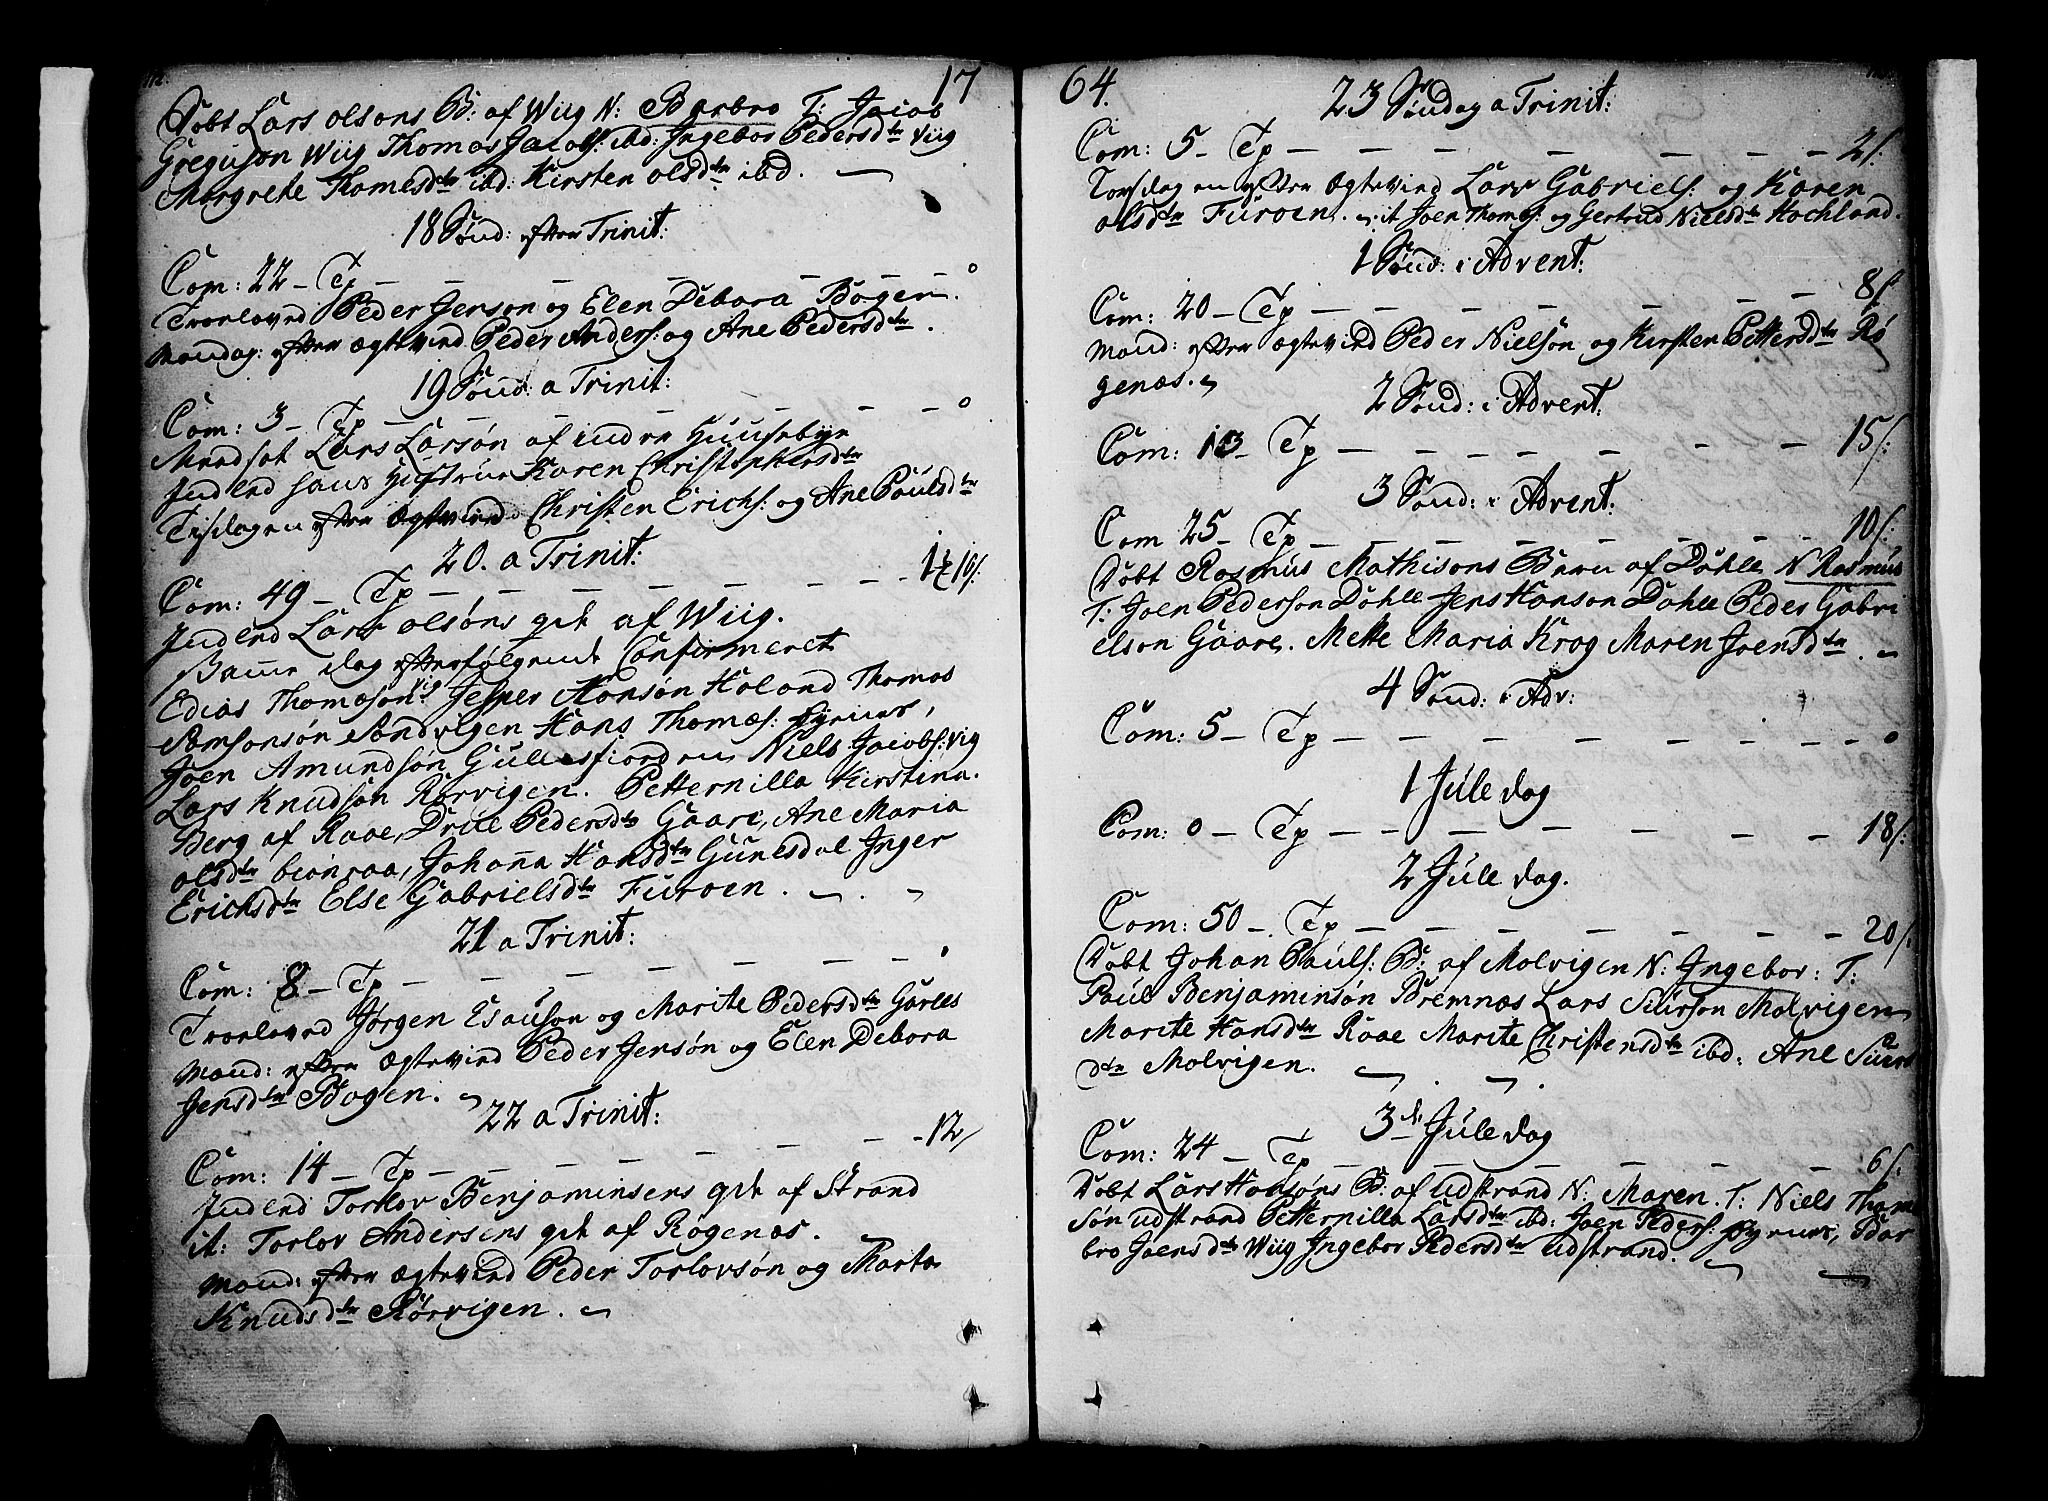 17
Døbt Lars olsøns B: af Wiig N: Barbro T: Jacob
Greguson Wiig Thomas Jacobs: ibd: Ingebor Pedersdtr Viig
Margrete Thomesdtr ibd: Kirsten olsdtr ibd.
18 Sønd: efter Trinit:
Com: 22 – Tp – – – – – – 0
Troeloved Peder Jenson og Elen Debora Bogen.
Mandag: efter ægtevied Peder Anders: og Ane Pedersdtr.
19 Sønd: a Trinit:
Com: 3 – Tp – – – – – – 0
Lars Larsøn af indre Huusebye
Inderd hans Hustrue Karen Christophersdtr
Tisdagen efter ægtevied Christen Erichs: og Ane Paulsdtr
20. a Trinit:
Com: 49 – Tp – – – – – – 1 16/:
Inderd Lars olsøns qde af Wiig.
Samme dag efterfølgende Confirmeret
Edias Thomæson Viig Jesper Hansøn Holand Thomas
Samsonsøn Sandvigen Hans Thomæs: Fyrnes,
Joen Amundsøn Gullesfiorden Niels Jacobs: Vig
Lars Knudsøn Rørvigen. Petternilla Kirstina
Berg af Raae, Drue Pedersdtr Gaare, Ane Maria
olsdtr Joh̄anna Hansdtr Gunesdal Inger
Erichsdtr Else Gabrielsdtr Furoen.
21 a Trinit:
Com: 8 – Tp – – – – – –
Troeloved Jørgen Esauson og Marite Pedersdtr Garles
Mand: efter ægtevied Peder Jensøn og Elen Debora
Jensdtr Bogen.
22 a Trinit:
Com: 14 – Tp – – – – – – 12/
Inderd Torlov Benjaminsens qde af Strand
it: Torlov Andersens qde af Røgenæs.
Mand: efter ægtevied Peder Torlovsøn og Marta
Knudsdtr Rørvigen.
64.
23 Søndag a Trinit:
Com: 5 – Tp – – – – – – 21:
Torsdagen efter ægtevied Lars Gabriels: og Karen
olsdtr Furoen. it Joen Thomes: og Gertrud Nielsdtr Hochland.
1 Sønd: i Advent:
Com: 20 – Tp – – – – – – 8/:
Mand: efter ægtevied Peder Nielsøn og Kirsten Pettersdtr Rø
genæs.
2 Sønd: i Advent:
Com: 13 Tp – – – – – – 15/:
3 Sønd: i Advent:
Com 25 – Tp – – – – – – 10/:
Døbt Rasmus Mathisøns Barn af Dahle N Rasmus
T: Joen Pederson Dahle Jens Hanson Dahle Peder Gabri
elson Gaare. Mette Maria Krog Maren Joensdtr.
4 Sønd: i Adv:
Com: 5 – Tp – – – – – – 0
1 Jule dag
Com: 0 – Tp – – – – – – 18/:
2 Jule dag.
Com: 50 – Tp – – – – – – 20/:
Døbt Johan Pauls: B: af Molvigen N: Ingebor: T:
Paul Benjaminsøn Bremnæs Lars Siurson Molvigen
Marite Hansdtr Raae Marite Christensdtr ibd: Ane Siurs
dtr Molvigen.
3de Jule dag
Com: 24 – Tp – – – – – – 6/:
Døbt Lars Hansøns B: af Udstrand N: Maren. T: Niels Thom
søn udstrand Petternilla Larsdtr ibd: Joen Peders: Fyrnes, Bar
bro Joensdtr Wiig Ingebor Pedersdtr udstrand.